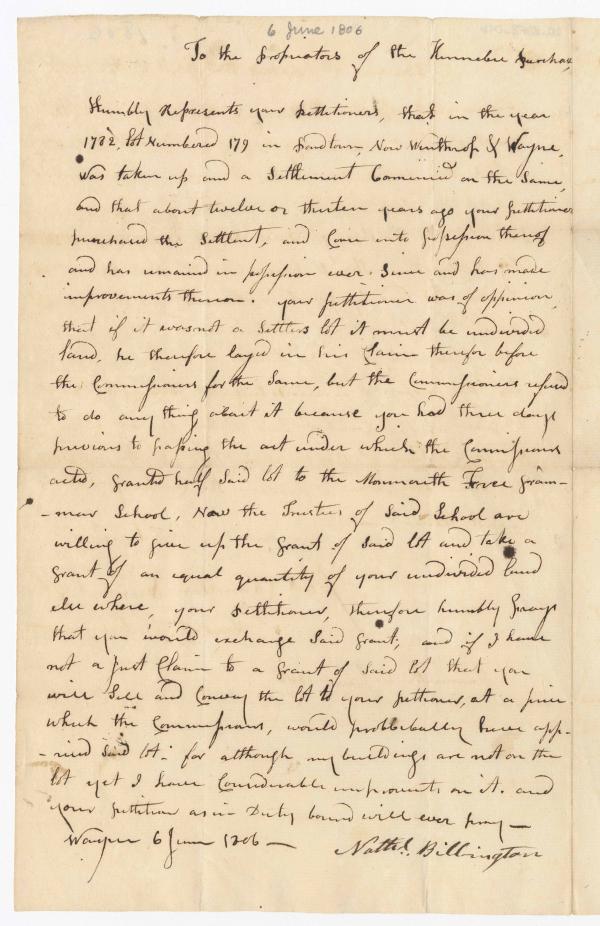 6 June 1806
To the Propriators of the Kennebec Purchas,
Humbly Represents your Petitioners, that in the year
1782, lot Numbered 179 in Pondtown, Now Winthrop & Wayne,
was taken up and a Settlement Commenid on the Same,
and that about twelve or thirten years ago your Petitioner
purchased the Settlent, and Come into Possession thereof
and has remained in possession ever Since and has made
improvements thereon. your petitioner was of oppinion,
that if it was not a Settlers lot it must be undivided
land, he therefore layed in his Claim therefor before
the Commissioners for the Same, but the Commissioners refused
to do any thing about it because you had three days
previous to passing the act under which the Commissioners
acted, granted half Said lot to the Monmouth Free Gram-
-mar School, Now the Trustees of Said School are
willing to give up the grant of Said lot and take a
grant of an equal quantity of your undivided land
else where, your Petitioner, therefore humbly prays
that you would exchange Said grant; and if I have
not a Just Claim to a grant of Said lot that you
will Sell and Convey the lot to your petitioner, at a price
which the Commissioners, would probbebally have app-
-rised Said lot: for although my buildings are not on the
lot yet I have Considerable improvents on it. and
your petition as in Duty bound will ever pray —
Wayne 6 June 1806 — Nathl. Billington